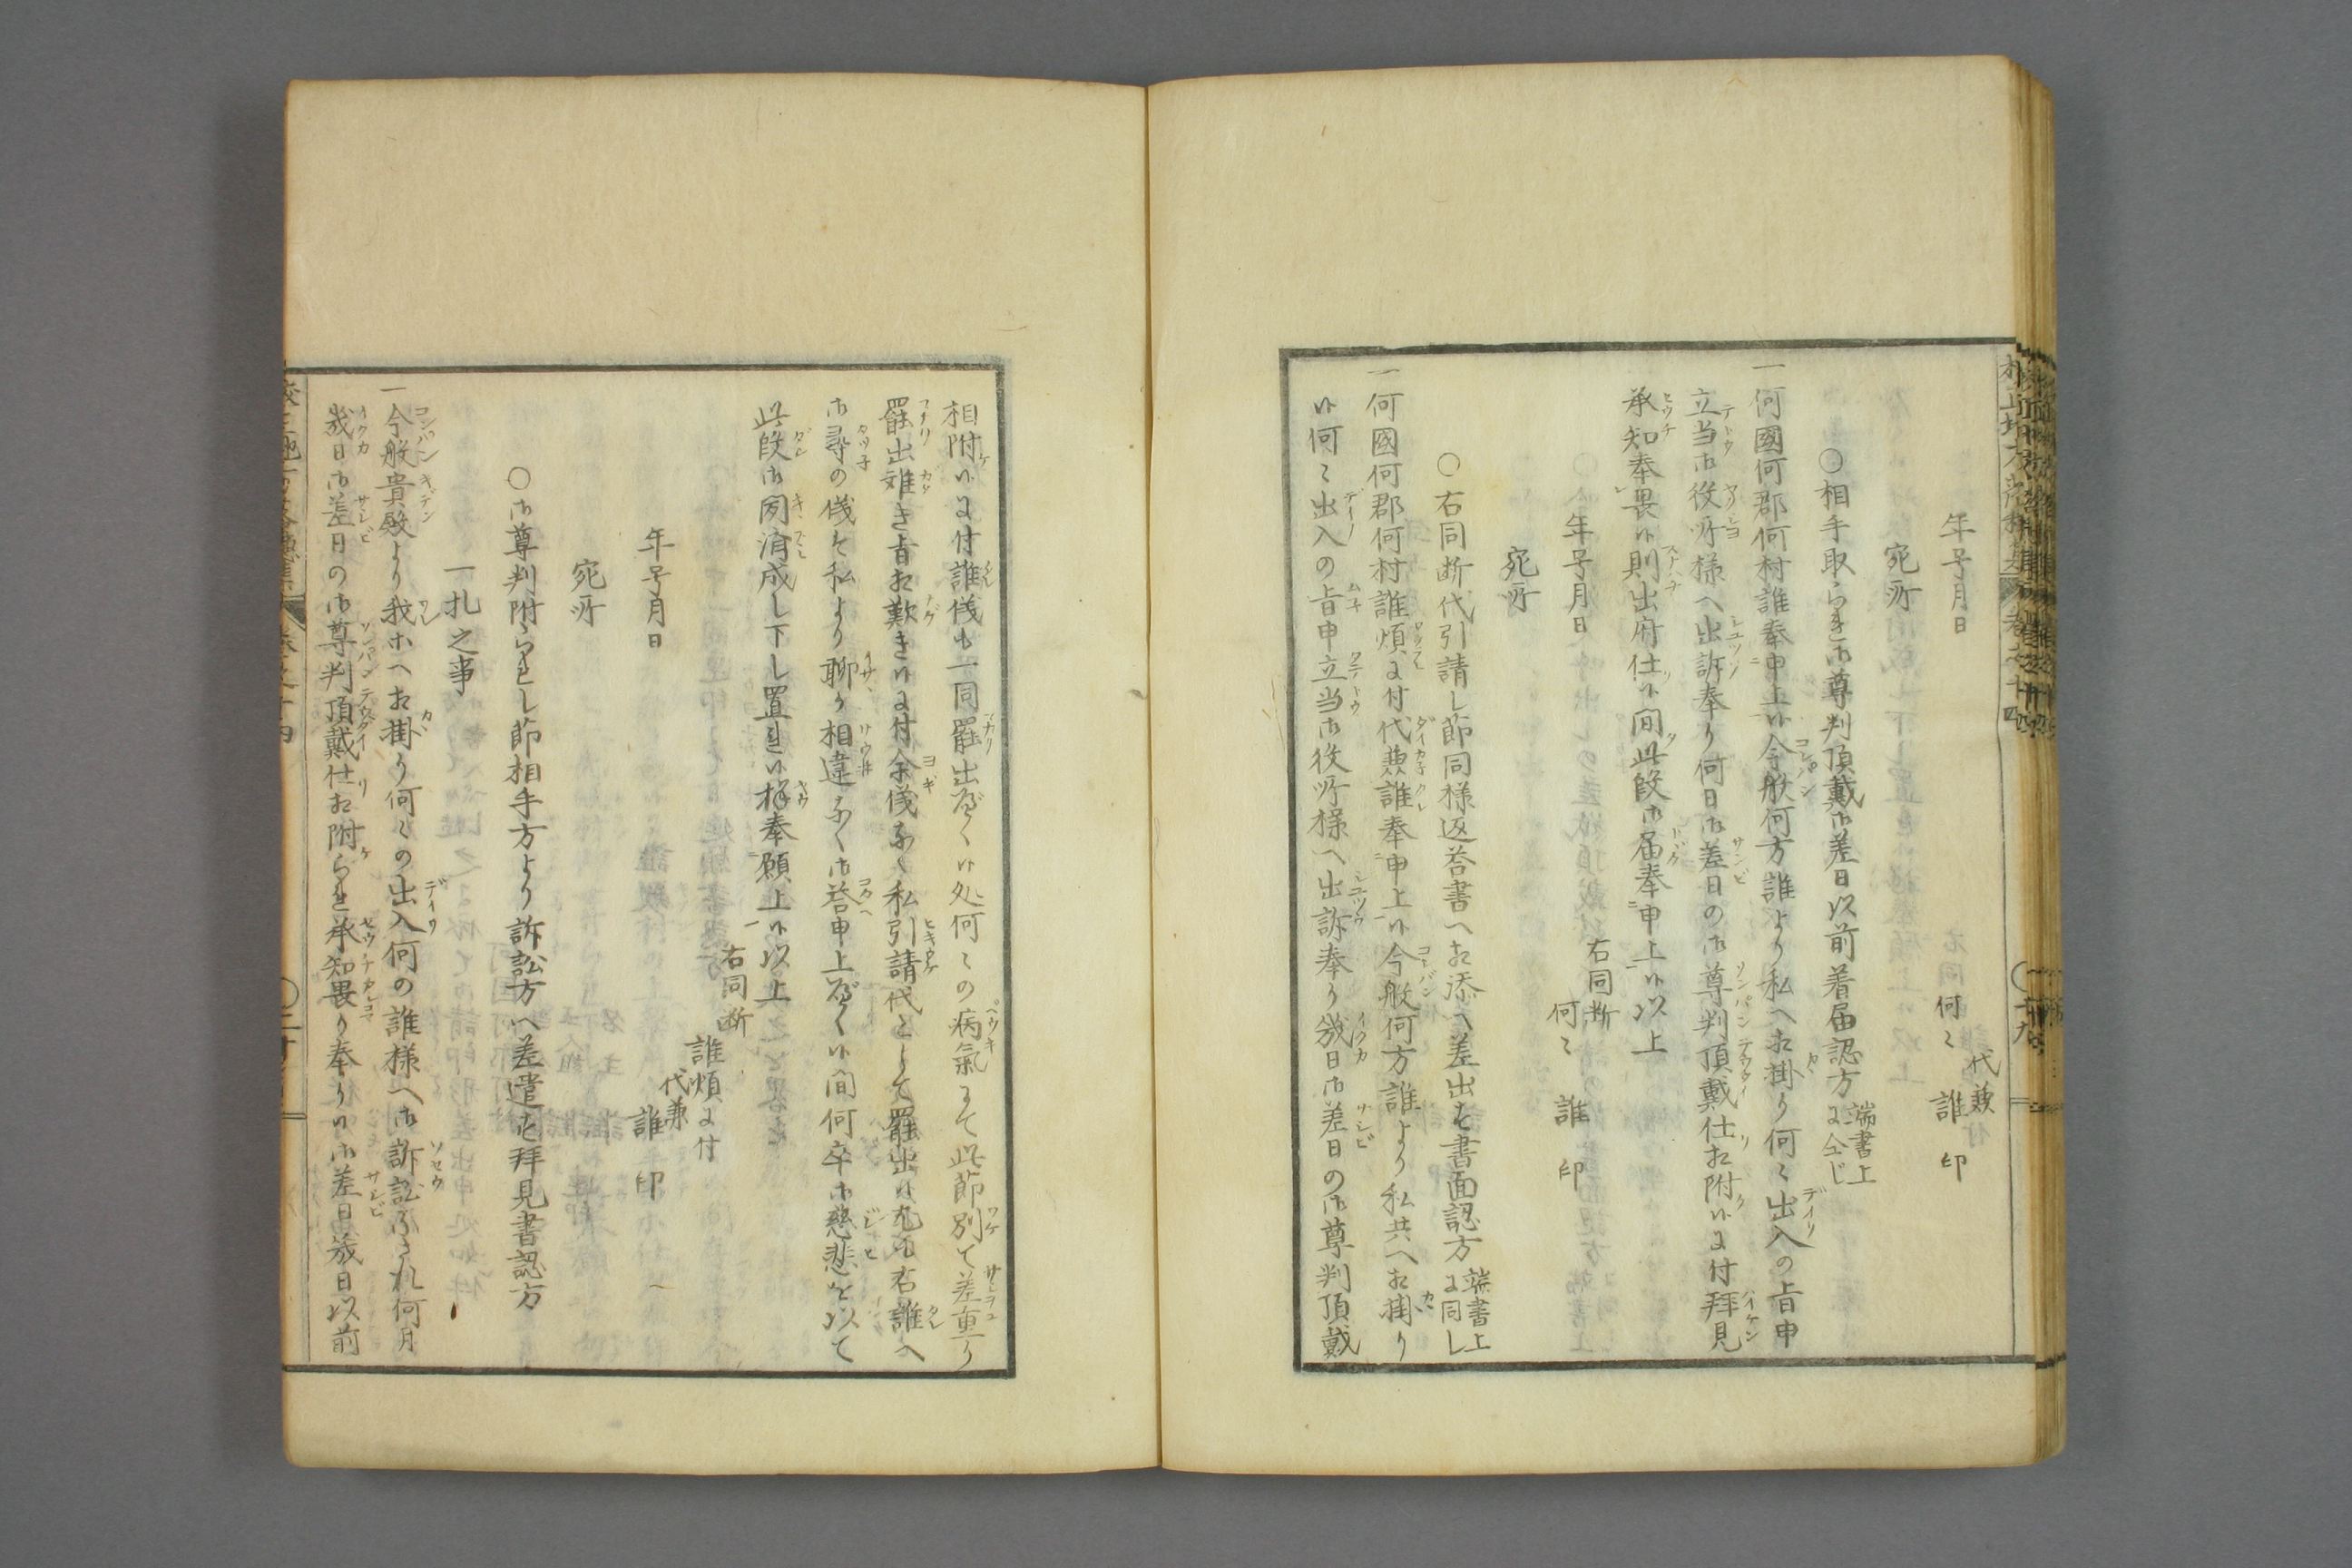 代兼
何〻 誰 印
年号月日
宛所
○相手取られ御尊判頂戴御差日以前着届認方 端書上に仝じ
一何國何郡何村誰奉申上候今般何方誰より私へ相掛り何〻出入の旨申
立当御役所様へ出訴奉り何日御差日の御尊判頂戴仕相附候に付拝見
承知奉畏候則出府仕候間此段御届奉申上候以上
右同断
年号月日 何〻 誰 印
宛所
○右同断代引請し節同様返答書へ相添へ差出す書面認方 端書上に同し
一何國何郡何村誰煩に付代兼誰奉申上候今般何方誰より私共へ相掛り
候何〻出入の旨申立当御役所様へ出訴奉り幾日御差日の御尊判頂戴
相附候に付誰儀も一同罷出べく候処何〻の病氣にて此節別て差重り
罷出難き旨相歎き候に付余儀なく私引請代として罷出候尤も右誰へ
御尋の儀は私より聊か相違なく御答申上べく候間何卒御慈悲を以て
此段御聞済成し下し置れ候様奉願上候以上
右同断
誰煩に付
代兼
年号月日 誰 印
宛所
○御尊判附られし節相手方より訴訟方へ差遣す拝見書認方
一札之事
一今般貴殿より我等へ相掛り何〻の出入何の誰様へ御訴訟なされ何月
幾日御差日の御尊判頂戴仕相附られ承知畏り奉り候御差日幾日以前